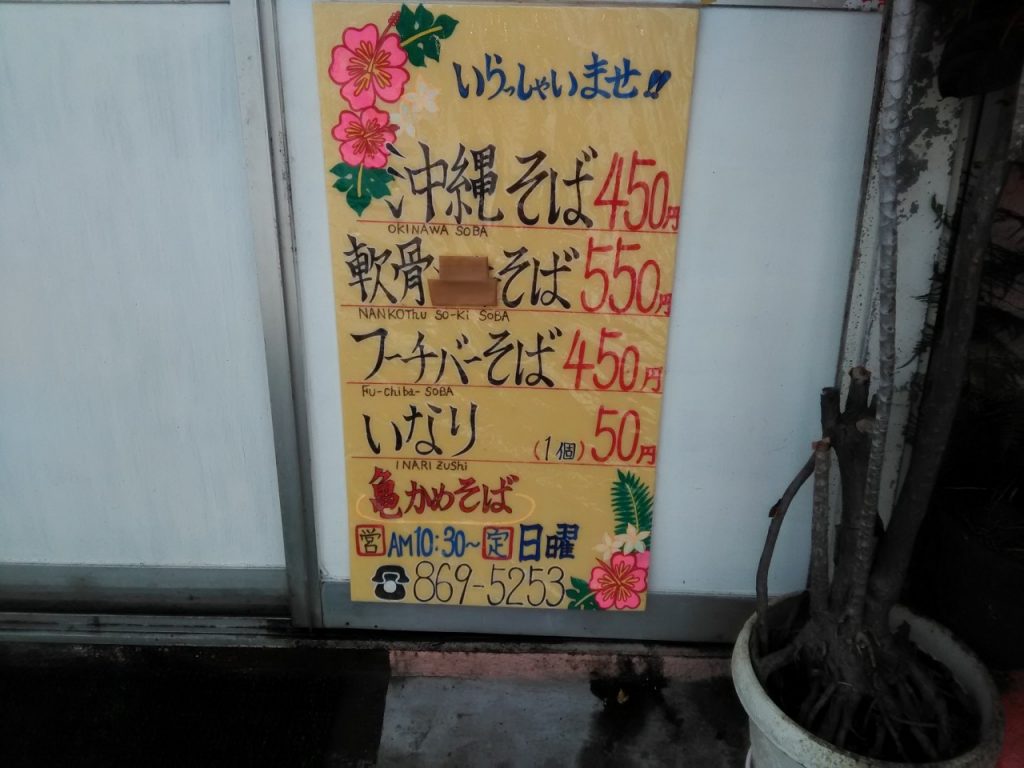 いらっしゃいませ!!
沖縄そば 450円
OKINAWA SOBA
軟骨 そば 550円
NANKOThu SO-Ki SOBA
フーチバーそば 450円
Fu-chiba-SOBA
いなり (1個) 50円
INARI ZUShi
亀かめそば
営 AM10:30~ 定 日曜
☎869-5253